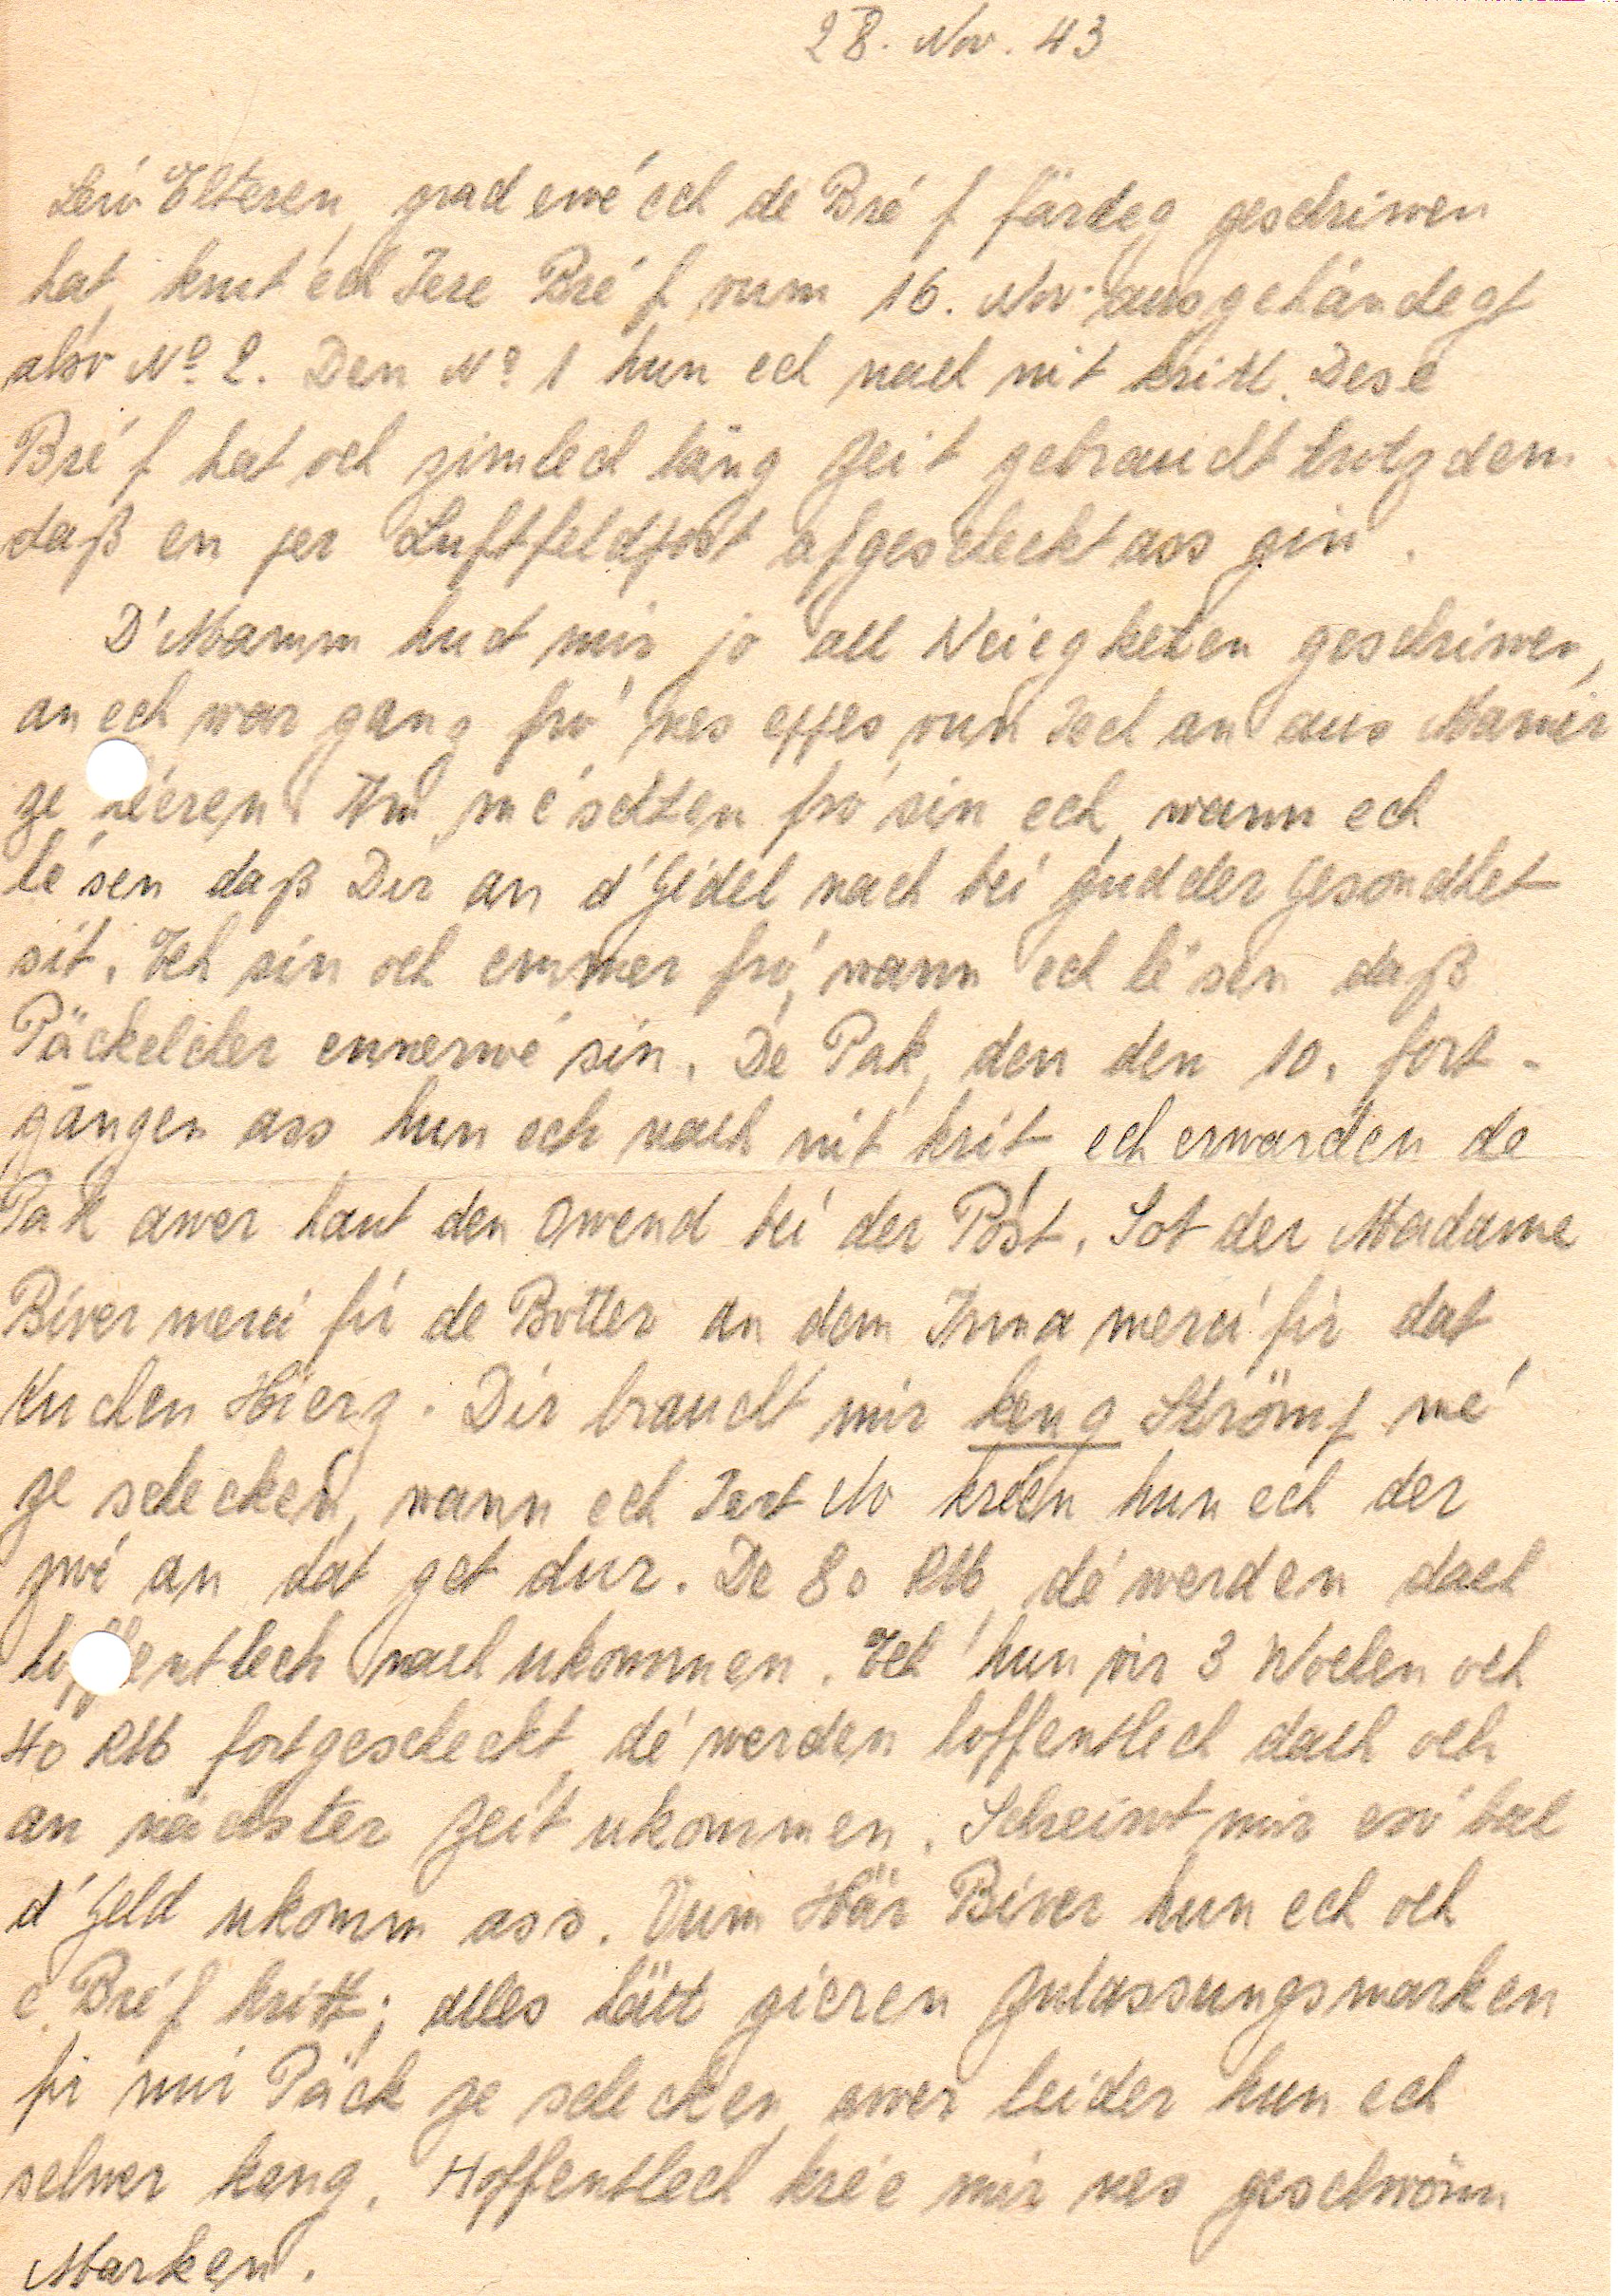 28. Nov. 43
Léiv Elteren, grad ewé ech de Bréf färdeg geschriwen
hat, krut ech Iere Bréf vum 16. Nov. ausgehändegt
also No 2. Den No 1 hun ech nach nit kritt. Dese
Bréf hat och zimlech läng Zeit gebraucht trotzdem
daß en per Luftfeldpost afgescheckt ass gin.
D'Mamm huet mir jo all Neiegketen geschriwen,
an ech war ganz fro' nes eppes vun Iech an aus Mamer
ze héieren. Am méschten fro' sin ech, wann ech
lésen daß Dir an d'Gidel nach bei gudder Gesondhet
sit. Ech sin och emmer fro', wann ech lésen daß
Päckelcher ennerwé sin. De Pak, den den 10. fort-
gängen ass hun ech nach nit krit, ech erwarden de
Pak awer haut den Owend bei der Post. Sot der Madame
Biver merci fir de Botter an dem Irma merci fir dat
Kuchen Hierz. Dir braucht mir keng Strömp mé
ze schecken, wann ech Iert No kréien hun ech der
zwé an dat get dur. De 80 RM dé werden dach
hoffentlech nach ukommen. Ech hun vir 3 Wochen och
40 RM fortgescheckt, dé werden hoffentlech dach och
an nächster Zeit ukommen. Schreiwt mir esó bal
d'Geld ukomm ass. Vum Här Biver hun ech och
e Bréf kritt; alles hätt gieren Zulassungsmarken
fir mir Päck ze schecken, awer leider hun ech
selwer keng. Hoffentlech krée mir nes geschwönn
Marken.